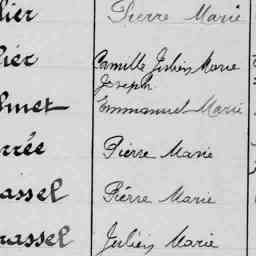 lier Pierre Marie
lier Camille Julien Marie
Joseph
lmet Emmanuel Marie
rrée Pierre Marie
assel Pierre Marie
rassel Julien Marie